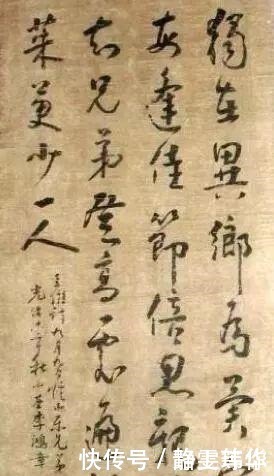 獨在異鄉為異
每逢佳節倍思親
知兄弟登高處遍
茱萸少一人
王維詩九月九日憶山東兄弟
光緒十年秋李鴻章
快传号/静雯韩你